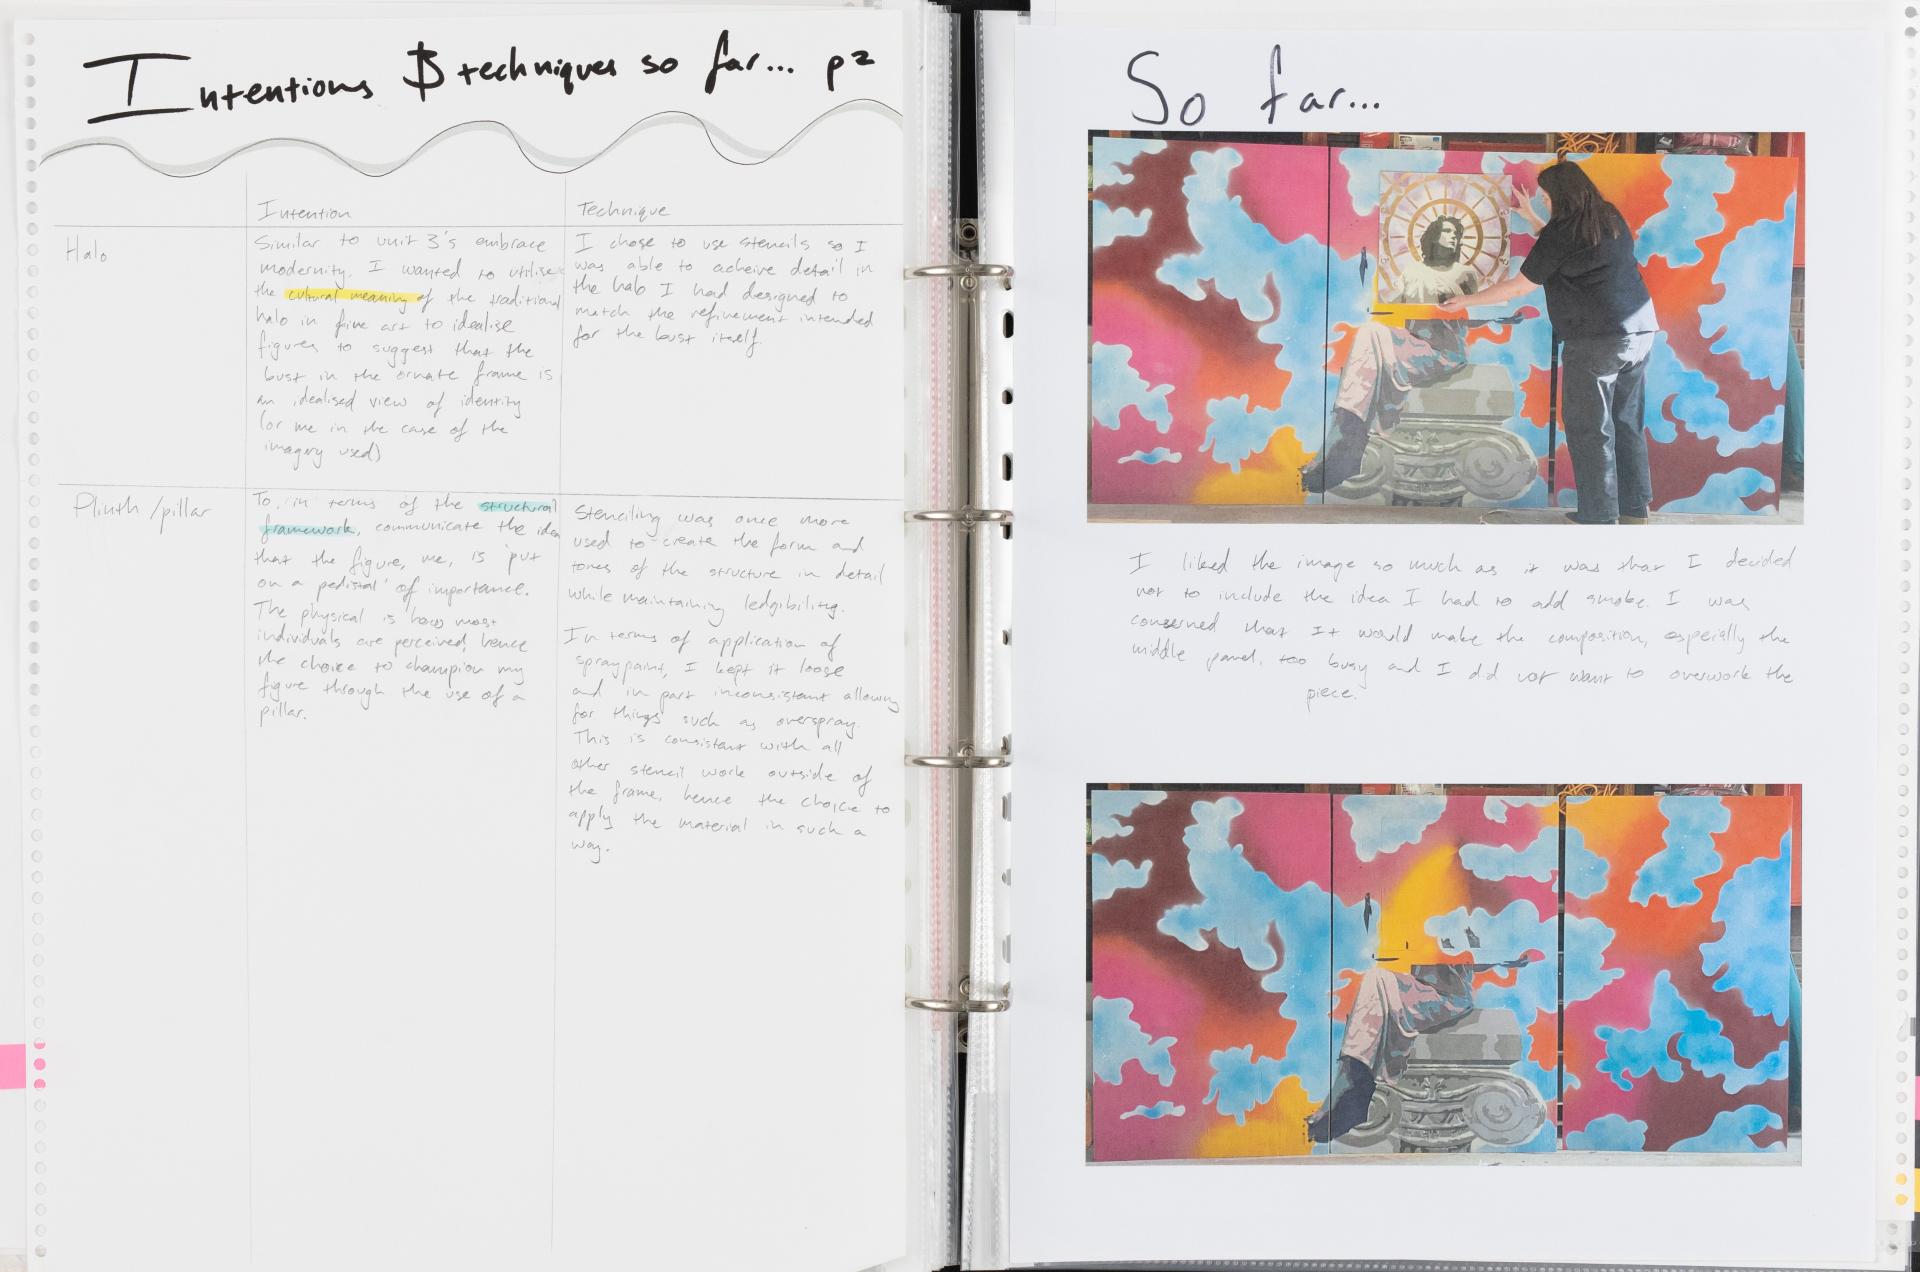 Intentions & techniques so far... p2
Intention
Technique
Halo
Similar to unit 3's embrace
modernity. I wanted to utilise
the cultural meaning of the traditional
halo in fine art to idealise
figures to suggest that the
bust in the ornate frame is
an idealised view of identity
(or me in the case of the
imagery used)
I chose to use stencils so I
was able to acheive detail in
the halo I had designed to
match the refinement intended
for the bust itself.
Plinth/pillar
To, in terms of the structural
framework, communicate the idea
that the figure, me, is 'put
on a pedistal' of importance.
The physical is how most
individuals are perceived, hence
the choice to champion my
figure through the use of a
pillar.
Stenciling was once more
used to create the form and
tones of the structure in detail
while maintaining ledgibility.
In terms of application of
spraypaint, I kept it loose
and in part inconsistant allowing
for things such as overspray.
This is consistent with all
other stencil work outside of
the frame, hence the choice to
apply the material in such a
way.
So far...
I liked the image so much as it was that I decided
not to include the idea I had to add smoke. I was
concerned that It would make the composition, especially the
middle panel, too busy and I did not want to overwork the
piece.